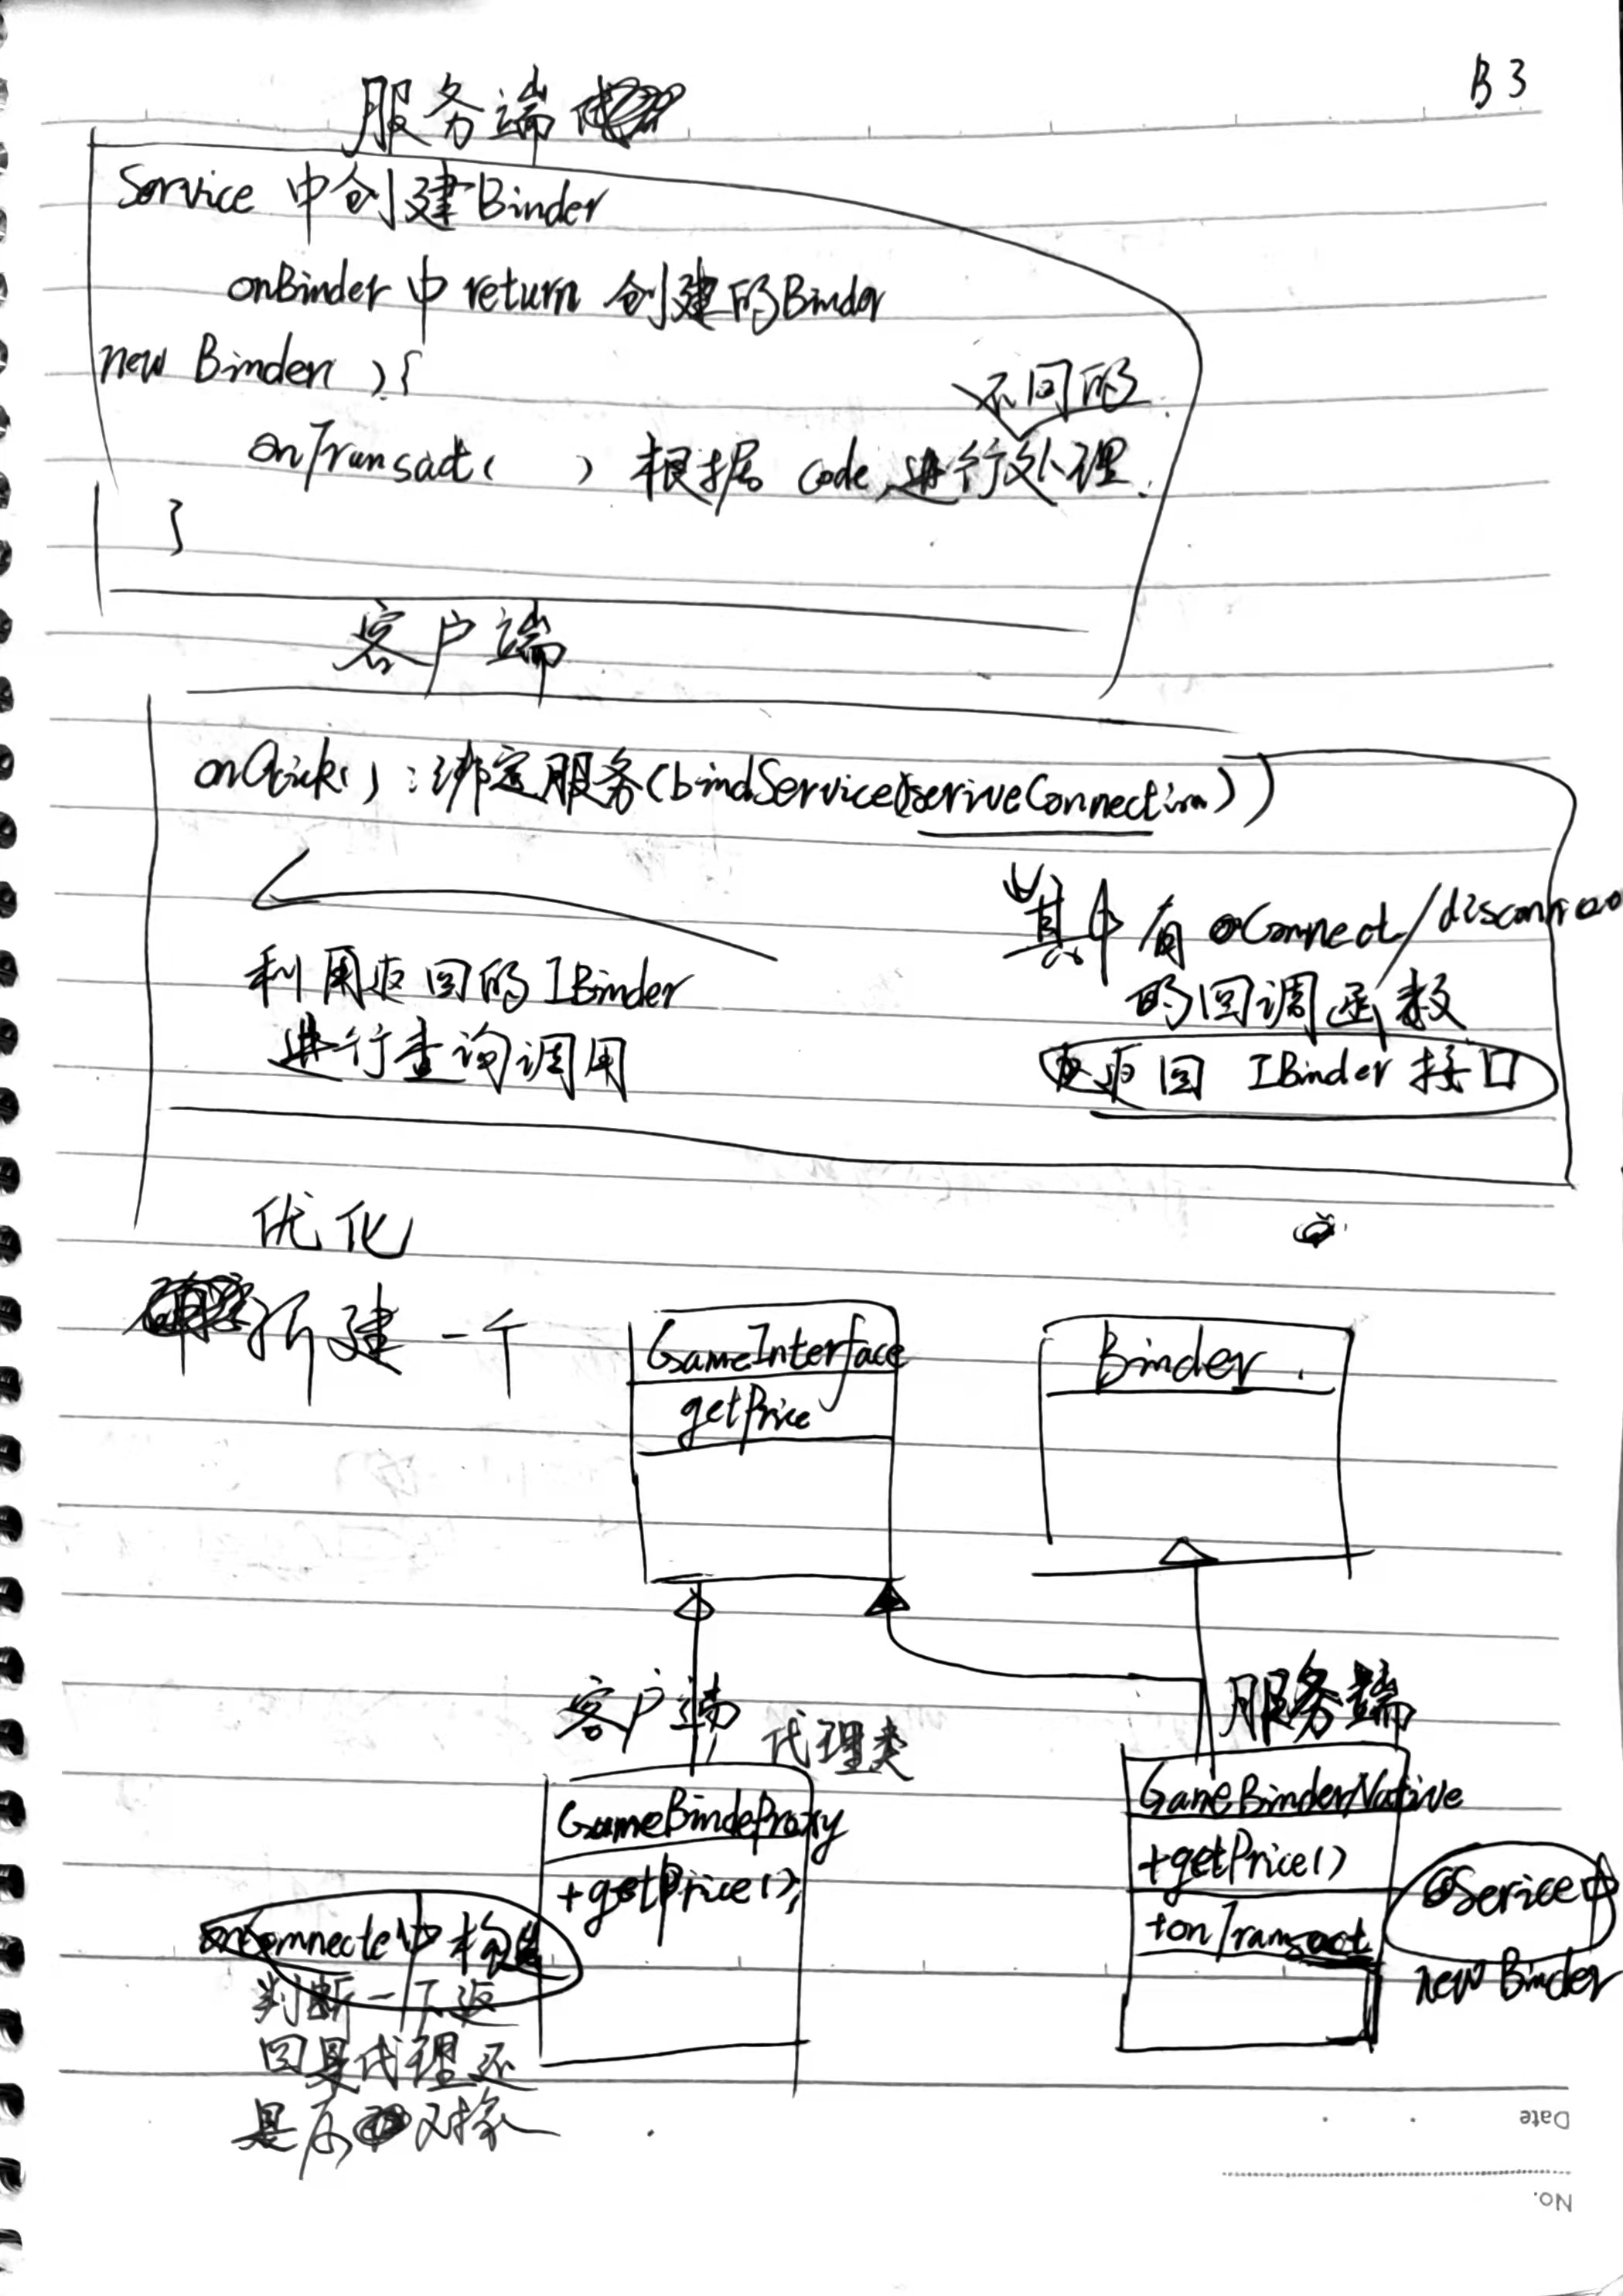 B 3
服务端
Service 中创建Binder
onBinder 中 return 创建的Binder
new Binder( ){
不同的
onTransact( ) 根据 code, 进行处理.
}
客户端
onClick() : 绑定服务(bindService(seriveConnection))
其中有 onConnect/disconnect
的回调函数
返回 IBinder 接口
利用返回的 IBinder
进行查询调用
优化
新建一个
GameInterface
getPrice
Binder
客户端
代理类
服务端
GameBindeProxy
+getPrice();
GameBinderNative
+getPrice()
+onTransact
Serice中
new Binder
onConnecte中构造
判断一下返
回是代理还
是原对象
Date
No.